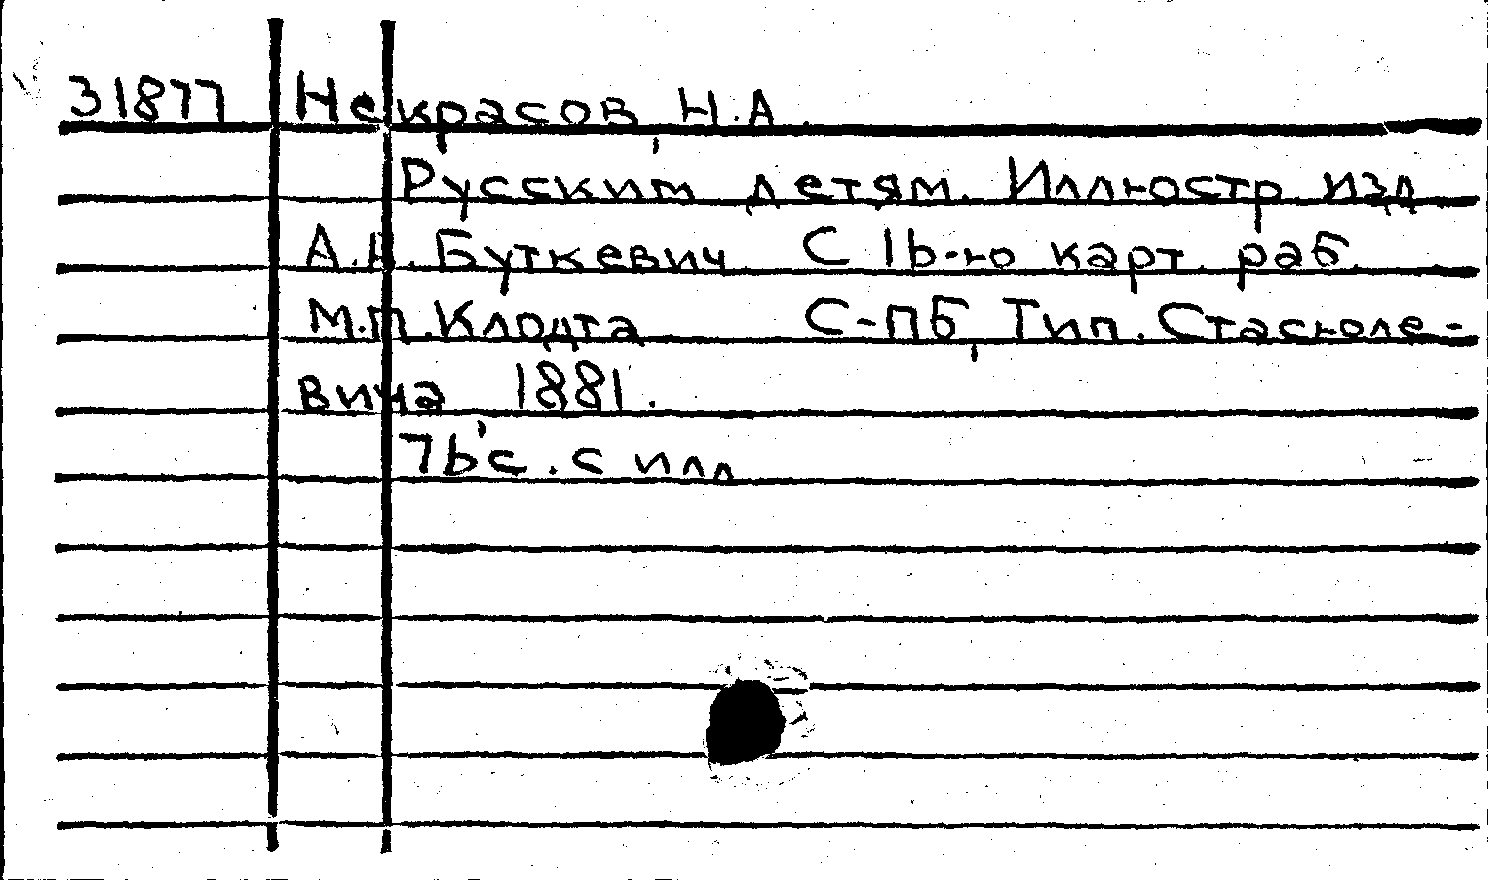 31877 Некрасов, Н.А.
Русским детям. Иллюстр изд
А.Н. Буткевич С 16-ю карт. раб.
М.П. Клодта С-ПБ, Тип. Стасюле-
вича 1881.
76 с. с илл